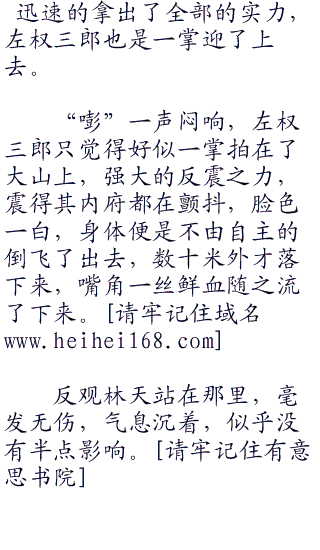 迅速的拿出了全部的实力，
左权三郎也是一掌迎了上
去。
“嘭”一声闷响，左权
三郎只觉得好似一掌拍在了
大山上，强大的反震之力，
震得其内府都在颤抖，脸色
一白，身体便是不由自主的
倒飞了出去，数十米外才落
下来，嘴角一丝鲜血随之流
了下来。[请牢记住域名
www.heihei168.com]
反观林天站在那里，毫
发无伤，气息沉着，似乎没
有半点影响。[请牢记住有意
思书院]